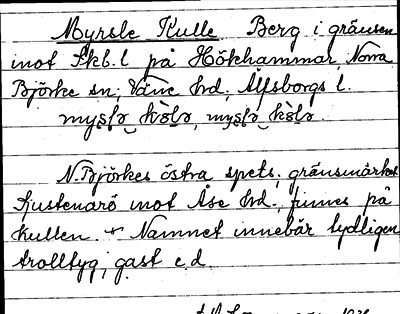 Myrsle Kulle Berg i gränsen
mot Skb.l på Hökhammar, Norra
Björke sn, Väne hd, Älfsborgs l.
N. Björkes östra spets; gränsmärket
mot Åse hd., finnes på
kullen. Namnet innebär tydligen
trolltyg, gast e.d.